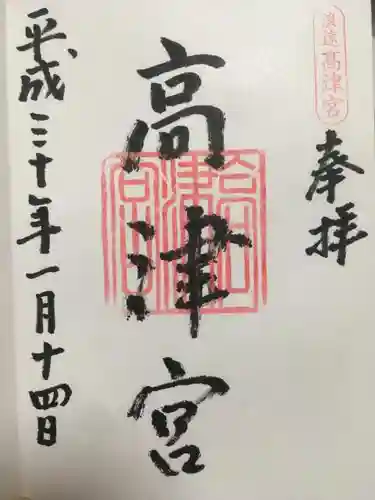 浪速高津宮
奉拝
高津宮
平成三十年一月十四日